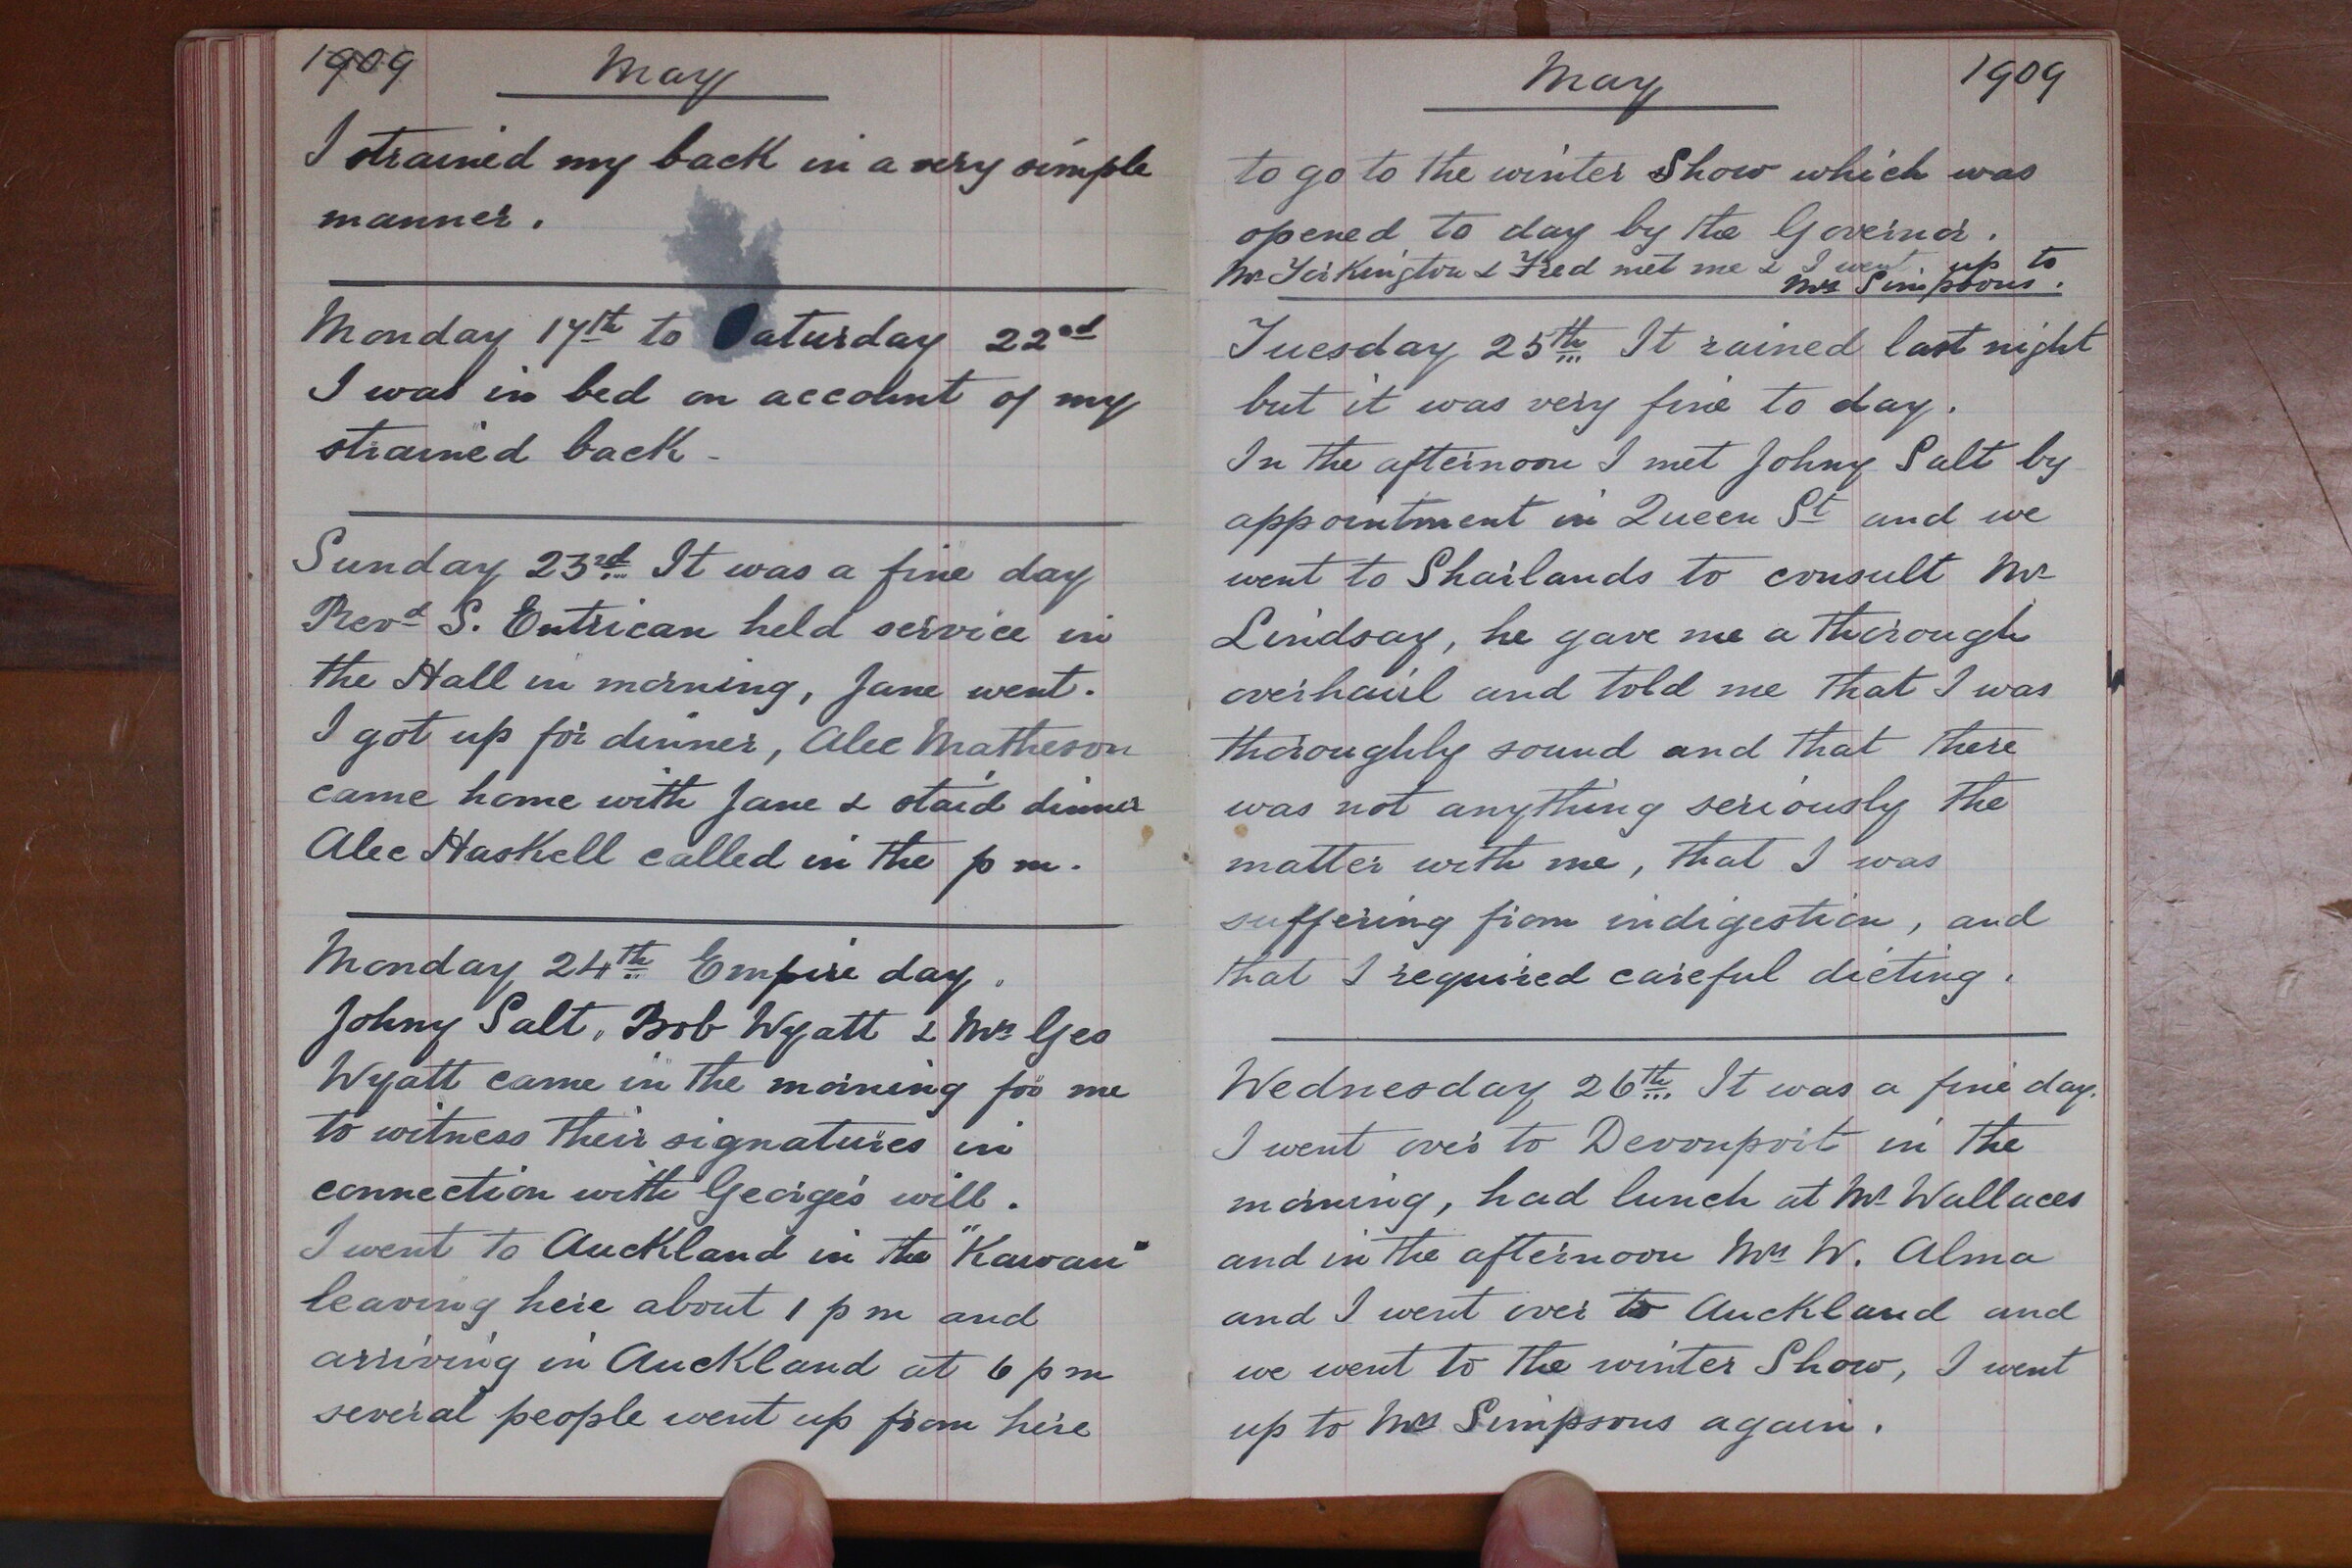 1909 May
I strained my back in a very simple
manner.
Monday 17th to Saturday 22nd
I was in bed on account of my
strained back -
Sunday 23rd It was a fine day
Revd S. Entrican held service in
the Hall in morning, Jane went.
I got up for dinner, Alec Matheson
came home with Jane & staid dinner
Alec Haskell called in the p m.
Monday 24th Empire day.
Johny Salt, Bob Wyatt & Mrs Geo
Wyatt came in the morning for me
to witness their signatures in
connection with George's will.
I went to Auckland in the "Kawau"
leaving here about 1 p m and
arriving in Auckland at 6 p m
several people went up from here
May 1909
to go to the winter Show which was
opened to day by the Governor.
Mr Torkington & Fred met me & I went up to
Mrs Simpsons.
Tuesday 25th It rained last night
but it was very fine to day.
In the afternoon I met Johny Salt by
appointment in Queen St and we
went to Sharlands to consult Mr
Lindsay, he gave me a thorough
overhaul and told me that I was
thoroughly sound and that there
was not anything seriously the
matter with me, that I was
suffering from indigestion, and
that I required careful dieting.
Wednesday 26th It was a fine day.
I went over to Devonport in the
morning, had lunch at Mr Wallaces
and in the afternoon Mrs W. Alma
and I went over to Auckland and
we went to the winter Show, I went
up to Mrs Simpsons again.